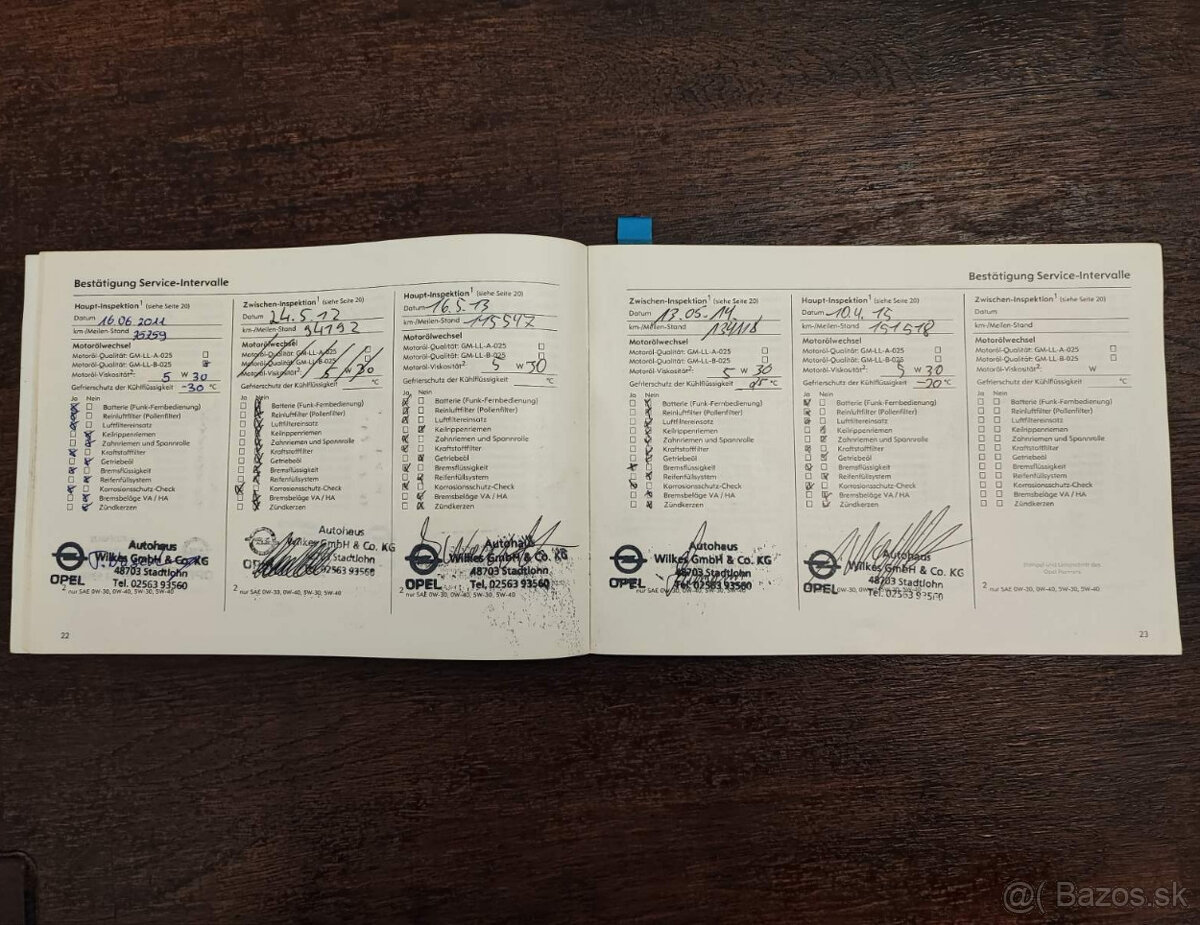 Bestätigung Service-Intervalle
Haupt-Inspektion¹ (siehe Seite 20)
Datum 16.06 2011
km-/Meilen-Stand
Motorölwechsel
Motoröl-Qualität: GM-LL-A-025
Motoröl-Qualität: GM-LL-B-025
Motoröl-Viskosität²: 5 W 30
Gefrierschutz der Kühlflüssigkeit -30 °C
Ja Nein
Batterie (Funk-Fernbedienung)
Reinluftfilter (Pollenfilter)
Luftfiltereinsatz
Keilrippenriemen
Zahnriemen und Spannrolle
Kraftstoffilter
Getriebeöl
Bremsflüssigkeit
Reifenfüllsystem
Korrosionsschutz-Check
Bremsbeläge VA / HA
Zündkerzen
Autohaus
Wilkes GmbH & Co. KG
48703 Stadtlohn
Tel. 02563 93560
OPEL
² nur SAE 0W-30, 0W-40, 5W-30, 5W-40
22
Zwischen-Inspektion¹ (siehe Seite 20)
Datum 24.5.12
km-/Meilen-Stand 94192
Motorölwechsel
Motoröl-Qualität: GM-LL-A-025
Motoröl-Qualität: GM-LL-B-025
Motoröl-Viskosität²: 5 W 30
Gefrierschutz der Kühlflüssigkeit °C
Ja Nein
Batterie (Funk-Fernbedienung)
Reinluftfilter (Pollenfilter)
Luftfiltereinsatz
Keilrippenriemen
Zahnriemen und Spannrolle
Kraftstoffilter
Getriebeöl
Bremsflüssigkeit
Reifenfüllsystem
Korrosionsschutz-Check
Bremsbeläge VA / HA
Zündkerzen
Autohaus
Wilkes GmbH & Co. KG
Stadtlohn
02563 93560
² nur SAE 0W-30, 0W-40, 5W-30, 5W-40
Haupt-Inspektion¹ (siehe Seite 20)
Datum 16.5.13
km-/Meilen-Stand 115547
Motorölwechsel
Motoröl-Qualität: GM-LL-A-025
Motoröl-Qualität: GM-LL-B-025
Motoröl-Viskosität²: 5 W 30
Gefrierschutz der Kühlflüssigkeit °C
Ja Nein
Batterie (Funk-Fernbedienung)
Reinluftfilter (Pollenfilter)
Luftfiltereinsatz
Keilrippenriemen
Zahnriemen und Spannrolle
Kraftstoffilter
Getriebeöl
Bremsflüssigkeit
Reifenfüllsystem
Korrosionsschutz-Check
Bremsbeläge VA / HA
Zündkerzen
Autohaus
Wilkes GmbH & Co. KG
48703 Stadtlohn
Tel. 02563 93560
OPEL
² nur SAE 0W-30, 0W-40, 5W-30, 5W-40
Bestätigung Service-Intervalle
Zwischen-Inspektion¹ (siehe Seite 20)
Datum 13.05.14
km-/Meilen-Stand 134118
Motorölwechsel
Motoröl-Qualität: GM-LL-A-025
Motoröl-Qualität: GM-LL-B-025
Motoröl-Viskosität²: 5 W 30
Gefrierschutz der Kühlflüssigkeit °C
Ja Nein
Batterie (Funk-Fernbedienung)
Reinluftfilter (Pollenfilter)
Luftfiltereinsatz
Keilrippenriemen
Zahnriemen und Spannrolle
Kraftstoffilter
Getriebeöl
Bremsflüssigkeit
Reifenfüllsystem
Korrosionsschutz-Check
Bremsbeläge VA / HA
Zündkerzen
Autohaus
Wilkes GmbH & Co. KG
48703 Stadtlohn
Tel. 02563 93560
OPEL
² nur SAE 0W-30, 0W-40, 5W-30, 5W-40
Haupt-Inspektion¹ (siehe Seite 20)
Datum 10.4.15
km-/Meilen-Stand 151518
Motorölwechsel
Motoröl-Qualität: GM-LL-A-025
Motoröl-Qualität: GM-LL-B-025
Motoröl-Viskosität²: 5 W 30
Gefrierschutz der Kühlflüssigkeit -20 °C
Ja Nein
Batterie (Funk-Fernbedienung)
Reinluftfilter (Pollenfilter)
Luftfiltereinsatz
Keilrippenriemen
Zahnriemen und Spannrolle
Kraftstoffilter
Getriebeöl
Bremsflüssigkeit
Reifenfüllsystem
Korrosionsschutz-Check
Bremsbeläge VA / HA
Zündkerzen
Autohaus
Wilkes GmbH & Co. KG
48703 Stadtlohn
Tel. 02563 93560
OPEL
0W-30, 0W-40, 5W-30, 5W-40
Zwischen-Inspektion¹ (siehe Seite 20)
Datum
km-/Meilen-Stand
Motorölwechsel
Motoröl-Qualität: GM-LL-A-025
Motoröl-Qualität: GM-LL-B-025
Motoröl-Viskosität²: W
Gefrierschutz der Kühlflüssigkeit °C
Ja Nein
Batterie (Funk-Fernbedienung)
Reinluftfilter (Pollenfilter)
Luftfiltereinsatz
Keilrippenriemen
Zahnriemen und Spannrolle
Kraftstoffilter
Getriebeöl
Bremsflüssigkeit
Reifenfüllsystem
Korrosionsschutz-Check
Bremsbeläge VA / HA
Zündkerzen
Stempel und Unterschrift des
Opel Partners
² nur SAE 0W-30, 0W-40, 5W-30, 5W-40
23
@( Bazos.sk